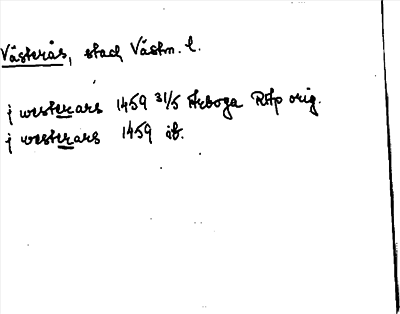 Västerås, stad, Västm. l.
j westerars 1459 31/5 Arboga RAp orig.
j westerars 1459 ib.